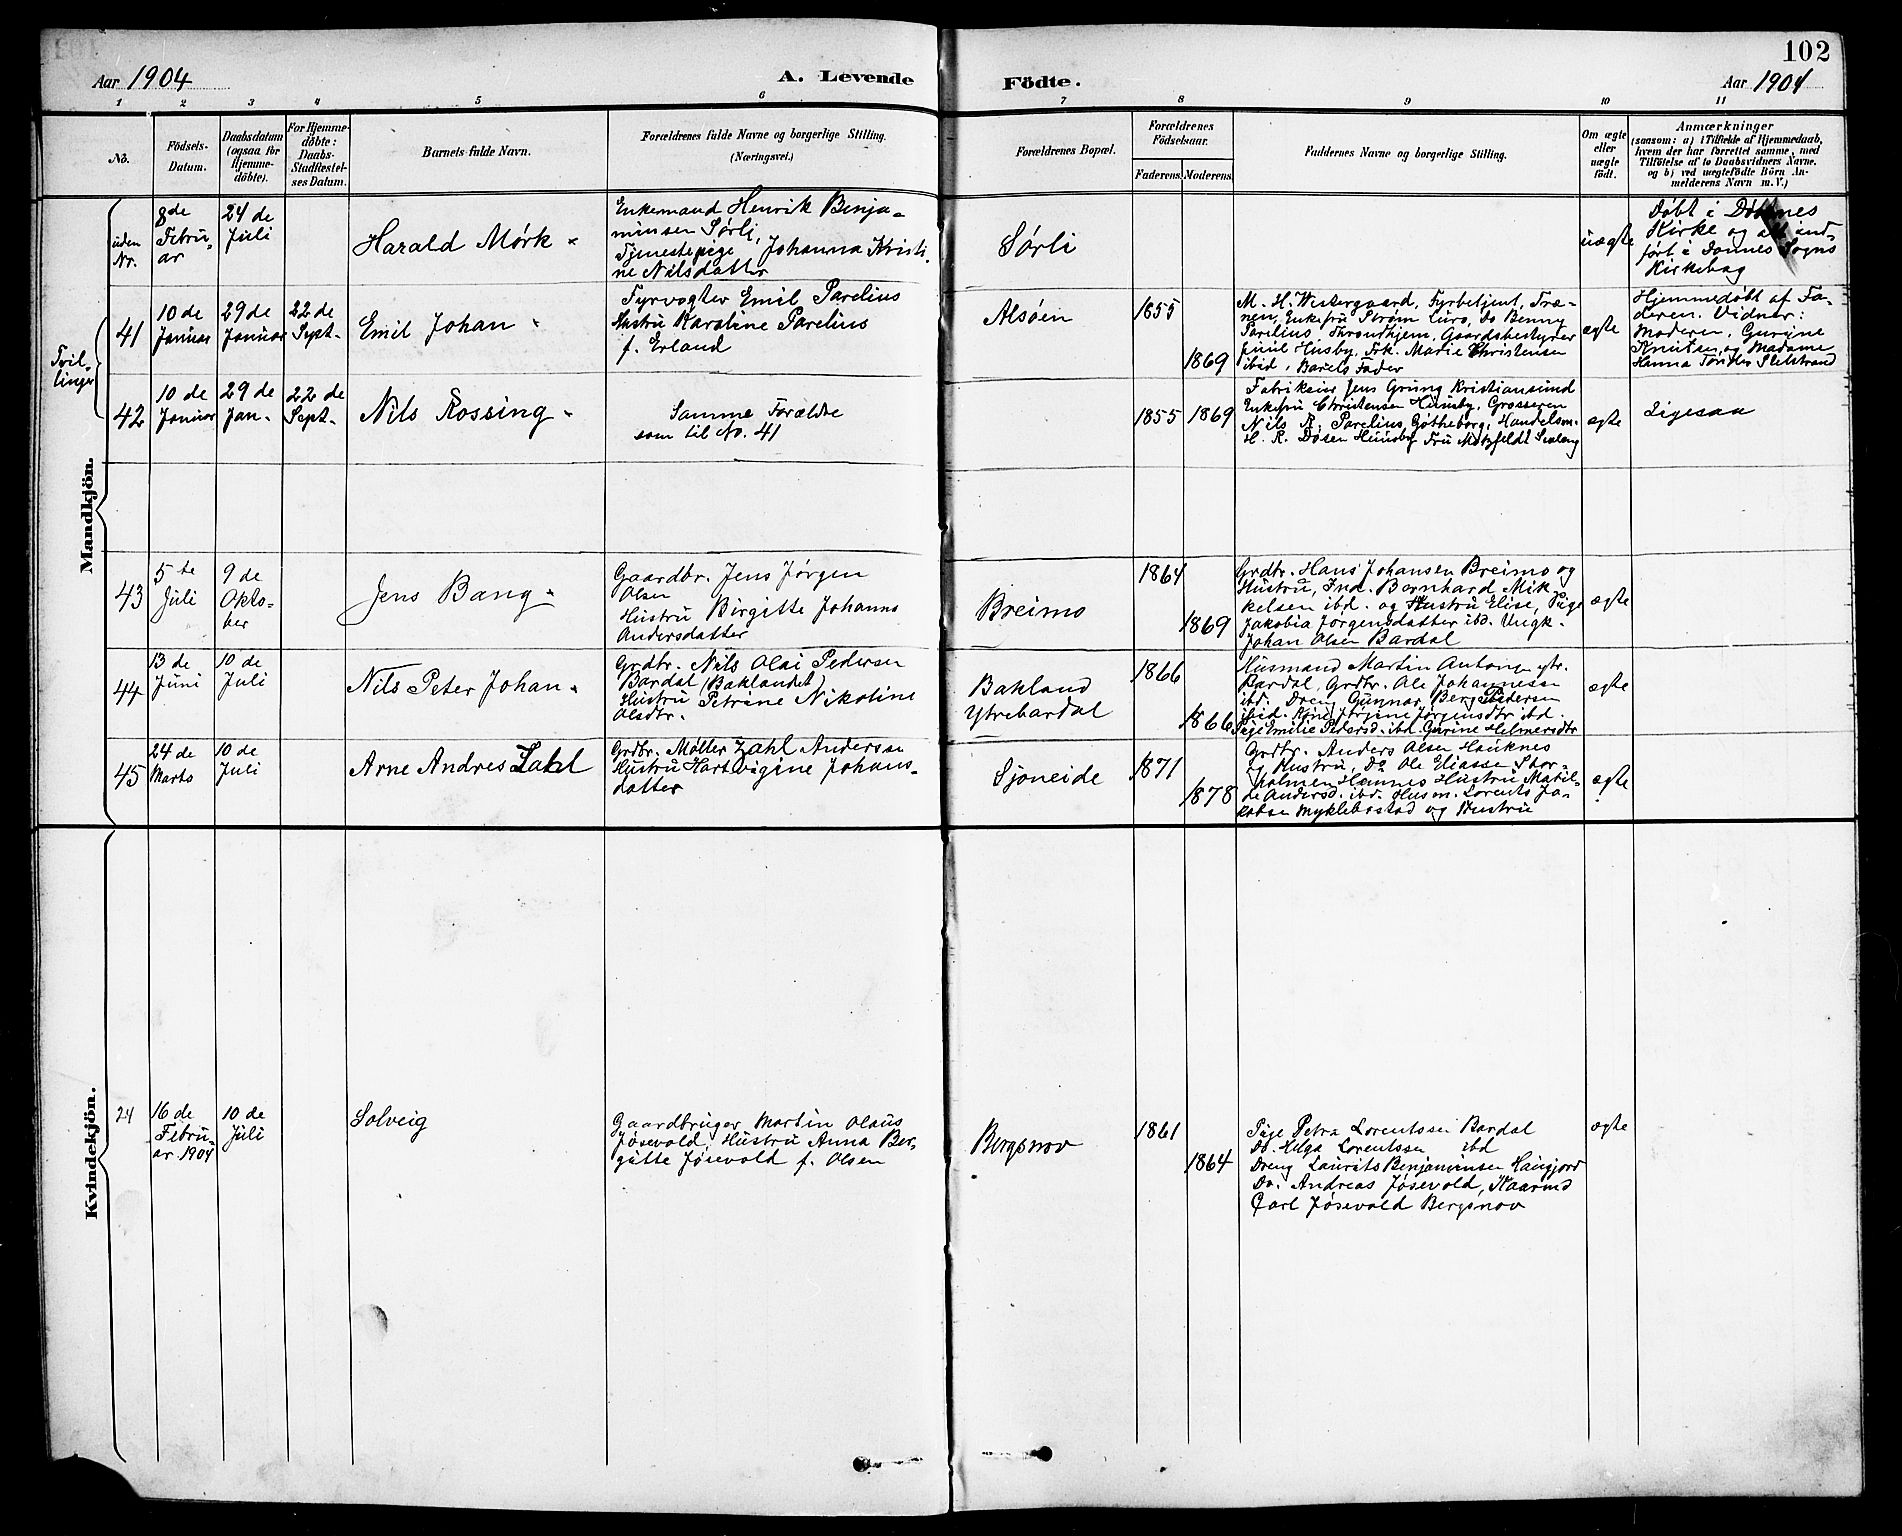 102
Aar 1904
A. Levende
Födte.
Aar 1904
1 2 3 4 5 6 7 8 9 10 11
No.
Födsels-
Datum.
Daabsdatum
(ogsaa for
Hjemme-
döbte).
For Hjemme-
döbte:
Daabs-
Stadfæstel-
ses Datum.
Barnets fulde Navn.
Forældrenes fulde Navne og borgerlige Stilling.
(Næringsvei.)
Forældrenes Bopæl.
Forældrenes
Födselsaar.
Faderens. Moderens.
Faddernes Navne og borgerlige Stilling.
Om ægte
eller
uægte
födt.
Anmærkninger
(saasom: a) i Tilfælde af Hjemmedaab,
hvem der har forrettet samme, med
Tilföielse af to Daabsvidners Navne.
og b) ved uægtefödte Börn An-
melderens Navn m.V.)
Mandkjön.
uden
Nr.
8de
Febru-
ar
24 de
Juli
Harald Mørk
Enkemand Henrik Benja-
minsen Sørli,
Tjenestepige Johanna Kristi-
ne Nilsdatter
Sørli
uægte
Døbt i
Kirke og ind-
ført i Dønnes Sogns
Kirkebog
Tvil-
linger
41
10 de
Januar
29 de
Januar
22 de
Sept.
Emil Johan
Fyrvogter Emil Parelius
Hustru Karoline Parelius
f. Erland
Alsøen
1855
1869
M. H. Westergaard, Fyrbetjent, Træ-
nen, Enkefru Strøm Lurø, do Benny
Parelius, Throndhjem, Gaardsbestyrer
Husby, Frk. Marie Christensen
ibid, Barets Fader
ægte
Hjemmedøbt af Fa-
deren. Vidner:
Moderen, Gurine
Knutsen og Madame
Hanna Sletstrand
42
10 de
Januar
29 de
Jan.
22 de
Sept.
Nils Rossing
Samme Forældre
som til No. 41
1855
1869
Fabrikeier Jens Grüng Kristiansund
Enkefru Christensen Huusby, Grosseren
Nils R. Parelius, Gøtheborg, Handelsm.
H. R. Døsen Huusby Fru Motzfeldt
ægte
Ligesaa
43
5te
Juli
9 de
Okto-
ber
Jens Bang
Gaardbr. Jens Jørgen
Olsen
Hustru Birgitte Johanna
Andersdatter
Breimo
1864
1869
Grdbr. Hans Johansen Breimo og
Hustru, Ind. Bernhard Mik-
kelsen ibd. og Hustru Elise, Pige
Jakobia Jørgensdatter ibd. Ungk.
Johan Olsen Bardal
ægte
44
13 de
Juni
10 de
Juli
Nils Peter Johan
Grdbr. Nils Olai Pedersen
Bardal (Baklandet)
Hustru Petrine Nikoline
Olsdtr.
Bakland
Ytrebardal
1866
1866
Husmand Martin Antons. ytr.
Bardal, Grdbr. Ole Johannessen
ibd. Dreng Gunnar Berg Pedersen
ibid. Kone Jørgine Jørgensdtr ibd.
Pige Emilie Petersd. ibd. Gurine Helmersdtr
ægte
45
24 de
Marts
10 de
Juli
Arne Andres Zahl
Grdbr. Møller Zahl Andersen
Hustru Hartvigine Johans-
datter
Sjøneide
1871
1878
Grdbr. Anders Olsen Hauknes
og Hustru, Do Ole Eliassen Stor-
holmen Hemnes Hustru Matil-
de Andersd. ibd. Husm. Lorents Ja-
kobsen Myklebostad og Hustru
ægte
Kvindekjön.
24
16 de
Febru-
ar 1904
10 de
Juli
Solveig
Gaardbruger Martin Olaus
Jøsevold, Hustru Anna Ber-
gitte Jøsevold f. Olsen
Bergsnov
1861
1864
Pige Petra Lorentssen Bardal
Do. Helga Lorentssen ibd
Dreng Laurits Benjaminsen Haugjord
Do. Andreas Jøsevold, Kaarmd
Carl Jøsevold Bergsnov
ægte